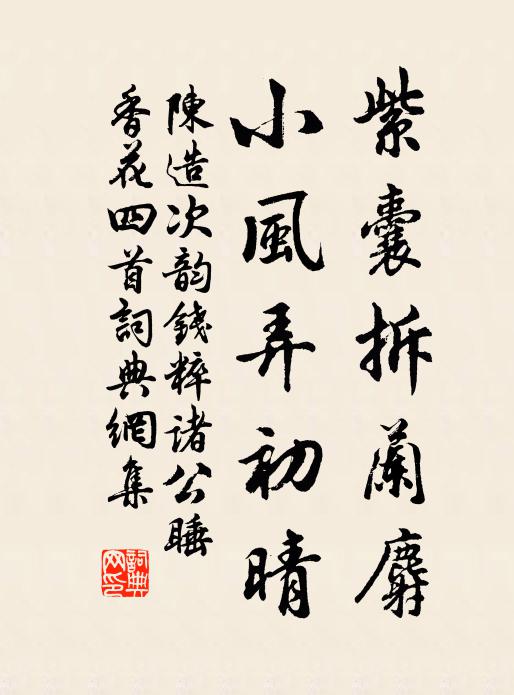 紫囊拆蘭麝
小風弄初晴
陳造次韵錢粹諸公睡
香花四首詞典網集
詞典
网印